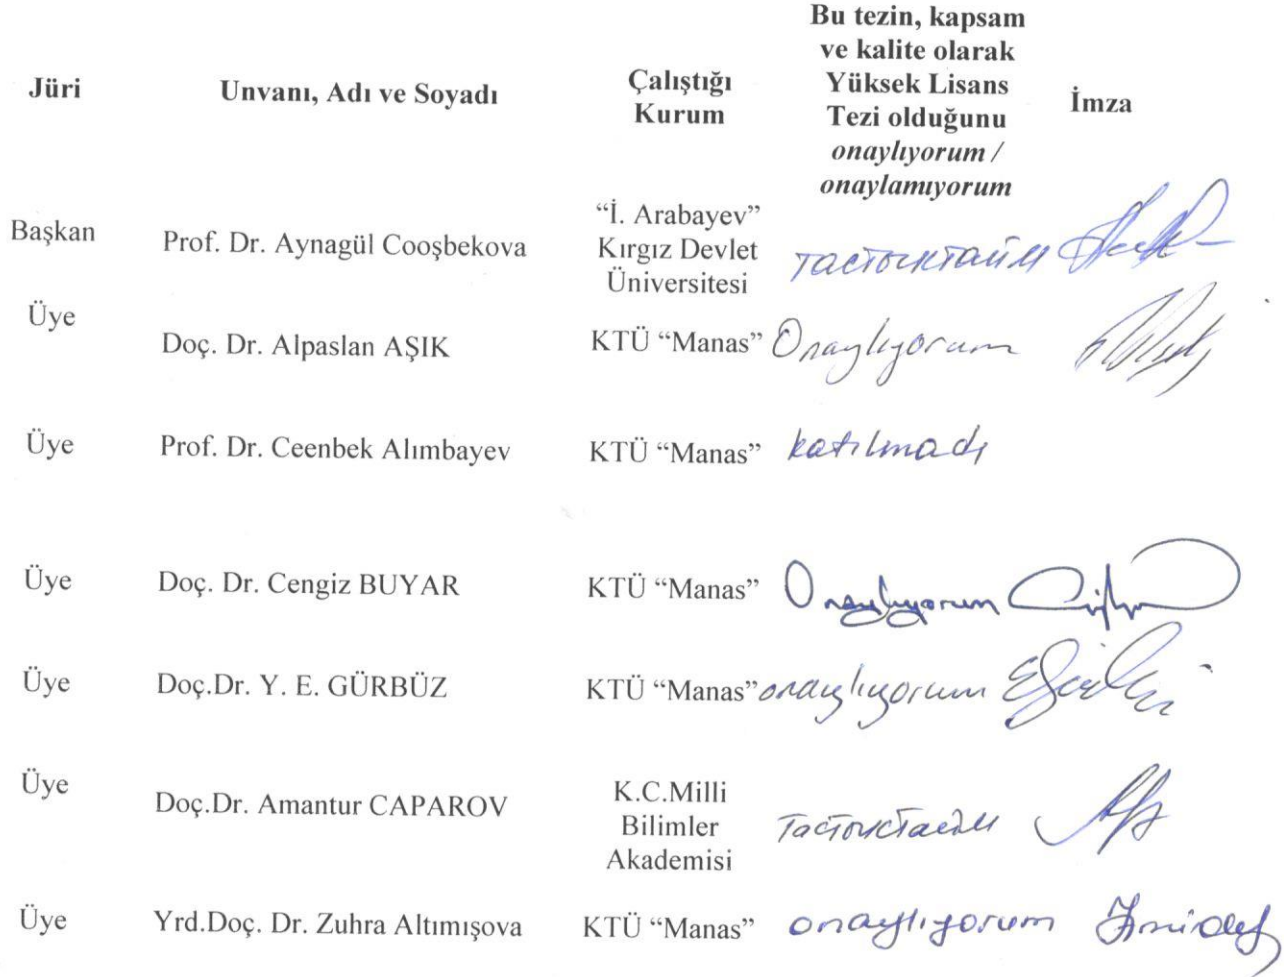 Jüri
Unvanı, Adı ve Soyadı
Çalıştığı
Kurum
Bu tezin, kapsam
ve kalite olarak
Yüksek Lisans
Tezi olduğunu
onaylıyorum /
onaylamıyorum
İmza
Başkan
Prof. Dr. Aynagül Cooşbekova
“İ. Arabayev”
Kırgız Devlet
Üniversitesi
тастыктайм
Üye
Doç. Dr. Alpaslan AŞIK
KTÜ “Manas”
Onaylıyorum
Üye
Prof. Dr. Ceenbek Alımbayev
KTÜ “Manas”
katılmadı
Üye
Doç. Dr. Cengiz BUYAR
KTÜ “Manas”
Onaylıyorum
Üye
Doç.Dr. Y. E. GÜRBÜZ
KTÜ “Manas”
onaylıyorum
Üye
Doç.Dr. Amantur CAPAROV
K.C.Milli
Bilimler
Akademisi
тастыктайм
Üye
Yrd.Doç. Dr. Zuhra Altımışova
KTÜ “Manas”
onaylıyorum